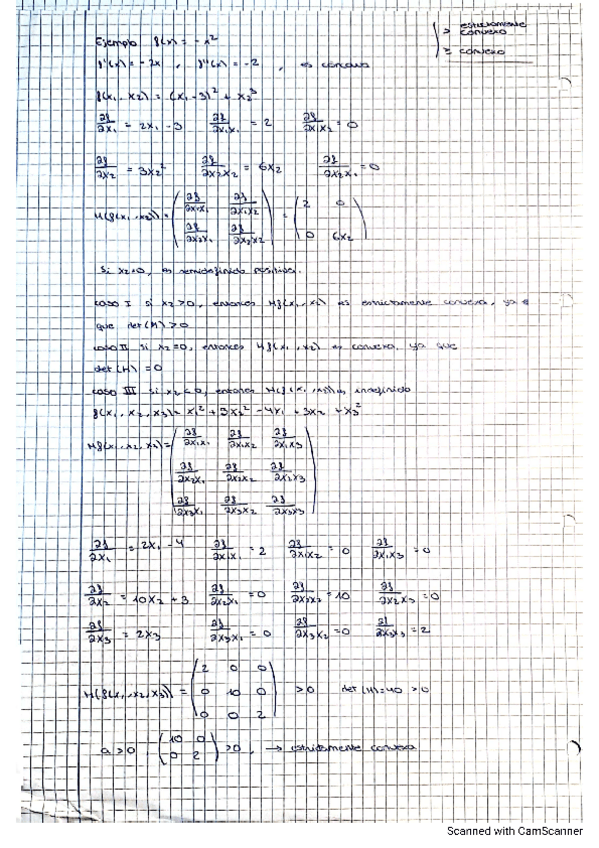 > estrictamente convexo
≥ convexo
Ejemplo f(x) = -x²
f'(x) = -2x, f''(x) = -2, es cóncava
f(x₁, x₂) = (x₁ - 3)² + x₂³
∂f/∂x₁ = 2x₁ - 3 ∂f/∂x₁x₁ = 2 ∂f/∂x₁x₂ = 0
∂f/∂x₂ = 3x₂² ∂f/∂x₂x₂ = 6x₂ ∂f/∂x₂x₁ = 0
H(f(x₁, x₂)) = (∂f/∂x₁x₁ ∂f/∂x₁x₂ = (2 0
∂f/∂x₂x₁ ∂f/∂x₂x₂) 0 6x₂)
Si x₂=0, es semidefinido positiva.
caso I si x₂>0, entonces Hf(x₁, x₂) es estrictamente convexa, ya
que det(H) > 0
caso II si x₂=0, entonces Hf(x₁, x₂) es convexa, ya que
det(H) = 0
caso III si x₂<0, entonces H(f(x₁, x₂)) es indefinido
f(x₁, x₂, x₃) = x₁² + 5x₂² - 4x₁ + 3x₂ + x₃²
Hf(x₁, x₂, x₃) = (∂f/∂x₁x₁ ∂f/∂x₁x₂ ∂f/∂x₁x₃
∂f/∂x₂x₁ ∂f/∂x₂x₂ ∂f/∂x₂x₃
∂f/∂x₃x₁ ∂f/∂x₃x₂ ∂f/∂x₃x₃)
∂f/∂x₁ = 2x₁ - 4 ∂f/∂x₁x₁ = 2 ∂f/∂x₁x₂ = 0 ∂f/∂x₁x₃ = 0
∂f/∂x₂ = 10x₂ + 3 ∂f/∂x₂x₁ = 0 ∂f/∂x₂x₂ = 10 ∂f/∂x₂x₃ = 0
∂f/∂x₃ = 2x₃ ∂f/∂x₃x₁ = 0 ∂f/∂x₃x₂ = 0 ∂f/∂x₃x₃ = 2
H(f(x₁, x₂, x₃)) = (2 0 0
0 10 0 > 0 det(H) = 40 > 0
0 0 2)
a > 0 (10 0
0 2) > 0, → estrictamente convexa
Scanned with CamScanner